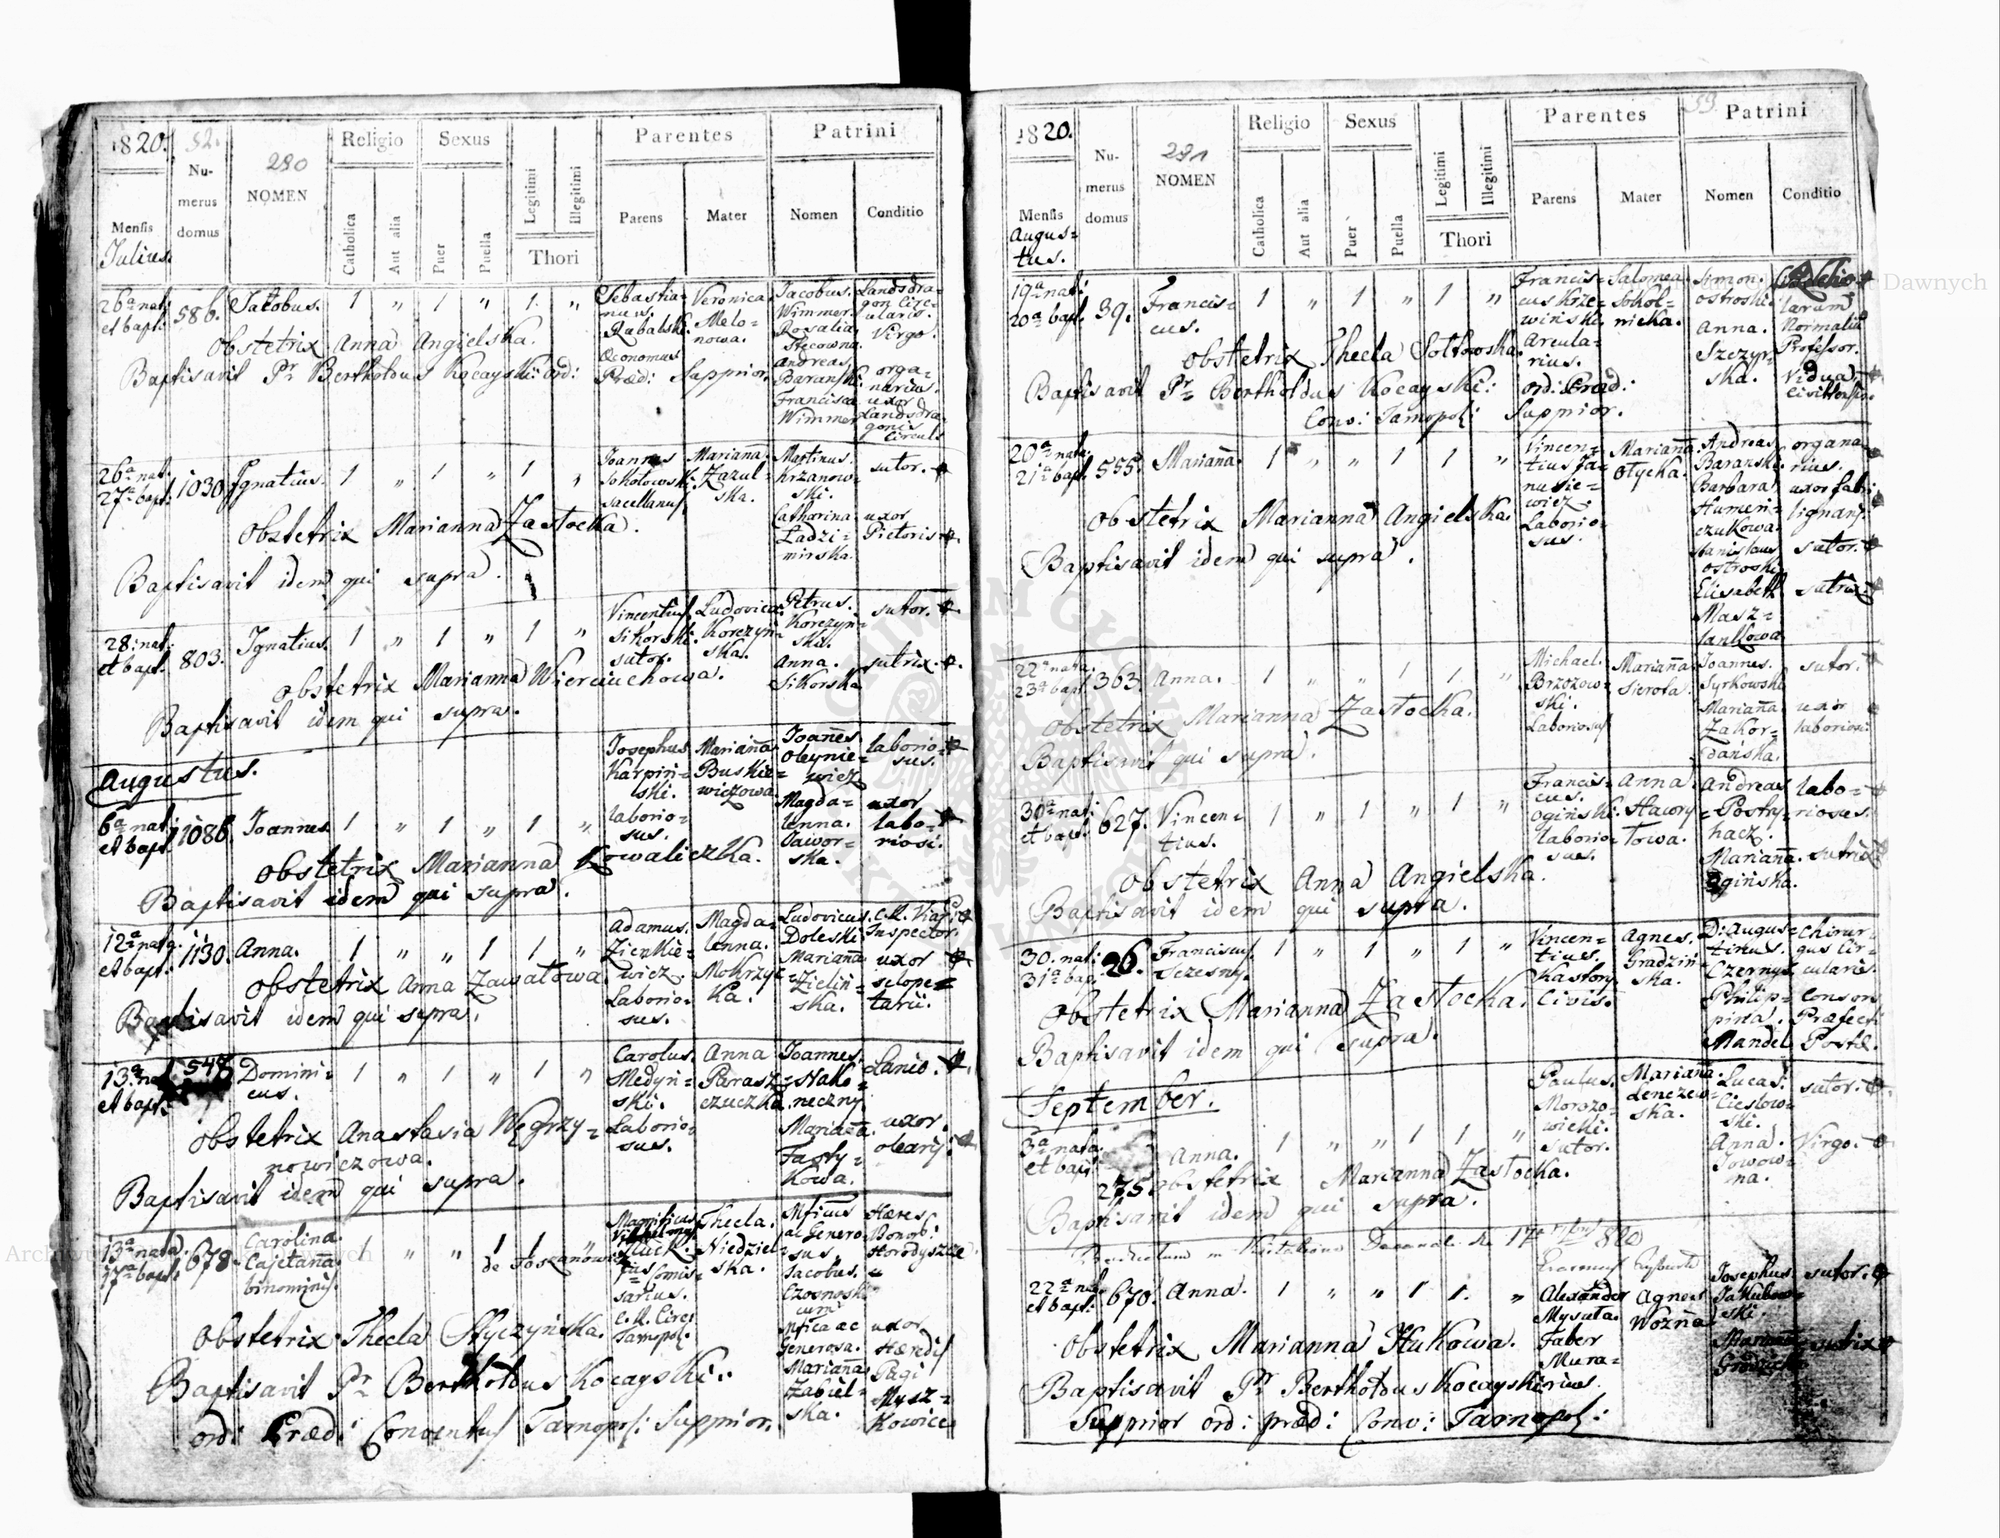 1820.
52.
290
Numerus domus
NOMEN
Religio
Sexus
Parentes
Patrini
Mensis
Catholica
Aut alia
Puer
Puella
Legitimi
Illegitimi
Thori
Parens
Mater
Nomen
Conditio
Julius.
26a nat: et bapt:
586.
Jacobus.
1 " 1 " 1. "
Sebastia=
nus.
Rabalski.
Œconomus
Veronica
Melo=
nowa.
Jacobus.
Wimmer.
Rosalia
Andreas
Baranski.
Francisca
Wimmer
Landsdra=
gon Circ=
ulario.
Virgo.
orga=
narius.
uxor
Landsdra
gonis
Circuli
Obstetrix Anna Angielska.
Baptisavit Pr Bertholdus Kocayski: ord: Præd: Supprior.
26a nat:
27a bapt:
1030.
Ignatius.
1 " 1 " 1 "
Joannes
Sokołowski.
Sacellanus
Marianna
Zazul=
ska.
Martinus.
Krzanow=
ski.
Catharina
Ladzi=
minska.
sutor.
uxor
Pictoris
Obstetrix Marianna Zastocka.
Baptisavit idem qui supra.
28: nat:
et bapt.
803.
Ignatius.
1 " 1 " 1 "
Vincentius
Sikorski.
sutor.
Ludovica
Korczyń=
ska.
Petrus.
Korczyń=
ska.
Anna.
Sikorska
sutor.
sutrix.
Obstetrix Marianna Wierciuchowa.
Baptisavit idem qui supra.
Augustus.
6a nat:
et bapt.
1086.
Joannes
1 " 1 " 1 "
Josephus
Karpiń=
ski.
laborio=
sus.
Marianna
Buskie=
wiczowa
Joannes
Oleynie=
wicz
Magda=
lenna.
Jawor=
ska.
laborio=
sus.
uxor
labo=
riosi.
Obstetrix Marianna Kowaliczka.
Baptisavit idem qui supra.
12a nata
et bapt:
1130.
Anna.
1 " " 1 1 "
Adamus.
Zienkie=
wicz.
Laborio=
sus.
Magda=
lenna.
Mokrzyc
ka.
Ludovicus.
Doleski
Marianna
Zieliń=
ska.
Inspector.
uxor
sclope=
tarii.
Obstetrix Anna Zawałowa.
Baptisavit idem qui supra.
13a nat
et bapt:
548
Domini=
cus.
1 " 1 " 1 "
Carolus.
Medyń=
ski.
Laborio=
sus.
Anna
Parasz=
czuczka
Joannes.
Nako=
neczny.
Marianna.
Kowa.
Lanio.
uxor.
olearij.
Obstetrix Anastasia Węgrzy=
nowiczowa.
Baptisavit idem qui supra.
13a nata
17a bapt:
678.
Carolina
Cajetana
binominis.
Magnificus
Thecla.
Niedziel=
ska.
sarius.
C. R. Circ:
Tarnopol:
Mficus
ac Genero=
sus
Jacobus.
cum
Mfica ac
Generosa.
Marianna
Zabiel=
ska.
Hæres
Bonor:
Horodyszcze
uxor
Hæredis
Pagi
Mysz=
kowice
Obstetrix Thecla Styczyńska.
Baptisavit Pr Bertholdus Kocayski:
ord: Præd: Conventus Tarnopol: Supprior.
1820.
53.
291
Numerus domus
NOMEN
Religio
Sexus
Parentes
Patrini
Mensis
Catholica
Aut alia
Puer
Puella
Legitimi
Illegitimi
Thori
Parens
Mater
Nomen
Conditio
Augus=
tus.
19a nat:
20a bapt.
39.
Francis=
cus.
1 " 1 " 1 "
Francis=
cus Krze=
wiński.
Arcula=
rius.
Salomea
Sokol=
nicka.
Simon.
Ostroski.
Anna.
Szczyp=
ska.
Scho=
larum
Normaliu
Professor.
Vidua
Obstetrix Thecla Sołtowska.
Baptisavit Pr Bertholdus Kocayski: ord: Præd:
Conv: Tarnopol: Suppror.
20a nata
21a bapt.
555.
Marianna.
1 " " 1 1 "
Vincen=
tius Ja=
nusie=
wicz
Laborio=
sus.
Marianna
Otycka.
Andreas
Baranski.
Barbara
Humen=
czukowa
Stanislaus
Ostroski
Elisabeth
Masz=
lankowa
organa=
rius.
uxor fabri
lignarij.
sutor.
sutrix
Obstetrix Marianna Angielska.
Baptisavit idem qui supra.
22a nata.
23a bapt.
363.
Anna.
1 " " 1 1. "
Michael.
Brzozow=
ski.
Laboriosus
Marianna
Sierota.
Joannes.
Syrkowski
Marianna.
Zakor=
dańska.
sutor.
uxor
laboriosi.
Obstetrix Marianna Zastocka.
Baptisavit qui supra.
30a nat:
et bapt.
627.
Vincen=
tius.
1 " 1 " 1 "
Francis=
cus.
Ogiński.
Laborio=
sus.
Anna
Hawry
łowa.
Andreas
Postry=
hacz.
Marianna.
Ogińska.
labo=
riosus.
sutrix
Obstetrix Anna Angielska.
Baptisavit idem qui supra.
30. nat:
31a bap:
26.
Franciscus
Szczesny.
1 " 1 " 1 "
Vincen=
tius.
Kastory
Civis.
Agnes.
Gradziń=
ska.
D: Augus=
tinus.
Czernys
Philip=
pina.
Mandel
Chirur=
gus Cir=
cularis.
Consors
Præfecti
Postæ.
Obstetrix Marianna Zastocka.
Baptisavit idem qui supra.
September.
3a nata
et bapt:
275.
Anna.
1 " " 1 1 "
Paulus.
Morozo=
wicki.
sutor.
Marianna
Lenczew=
ska.
Lucas.
Cieslow=
ski.
Anna.
Jowow=
na.
sutor.
Virgo.
Obstetrix Marianna Zastocka.
Baptisavit idem qui supra.
22a nat
et bapt:
670.
Anna.
1 " " 1 1 "
Alexander
Mysuła.
Faber
Mura=
rius.
Agnes
Woźna
Josephus.
Jakubow=
ski.
Marianna
sutor.
sutrix
Obstetrix Marianna Hukowa.
Baptisavit Pr Bertholdus Kocayski
Supprior ord: præd: Conv: Tarnopol: